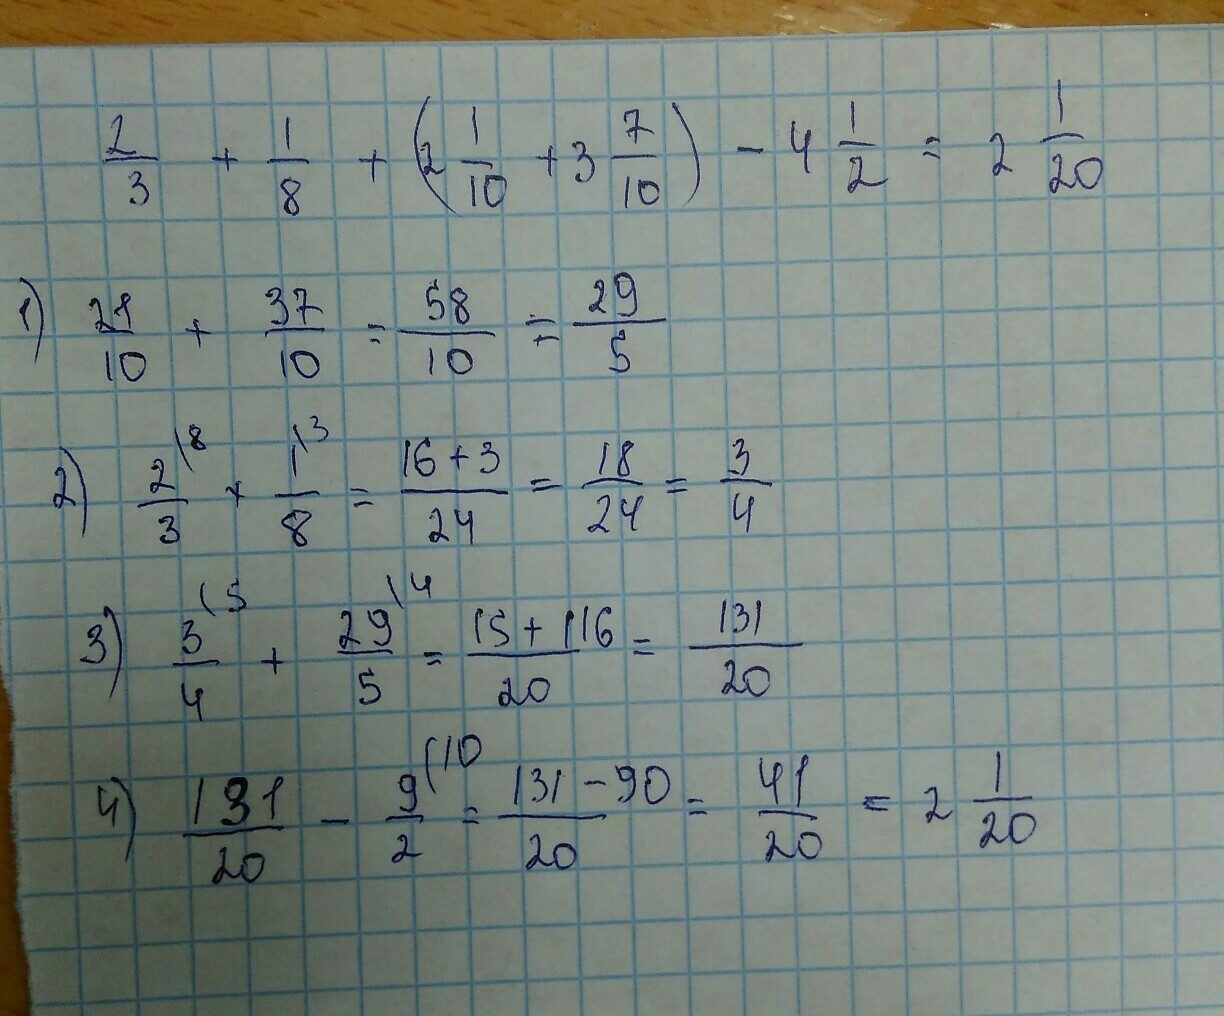 2/3 + 1/8 + (2 1/10 + 3 7/10) - 4 1/2 = 2 1/20
1) 21/10 + 37/10 = 58/10 = 29/5
2) 2/3 \8 + 1/8 \3 = 16+3/24 = 18/24 = 3/4
3) 3/4 (5 + 29/5 \4 = 15+116/20 = 131/20
4) 131/20 - 9/2 (10 = 131-90/20 = 41/20 = 2 1/20